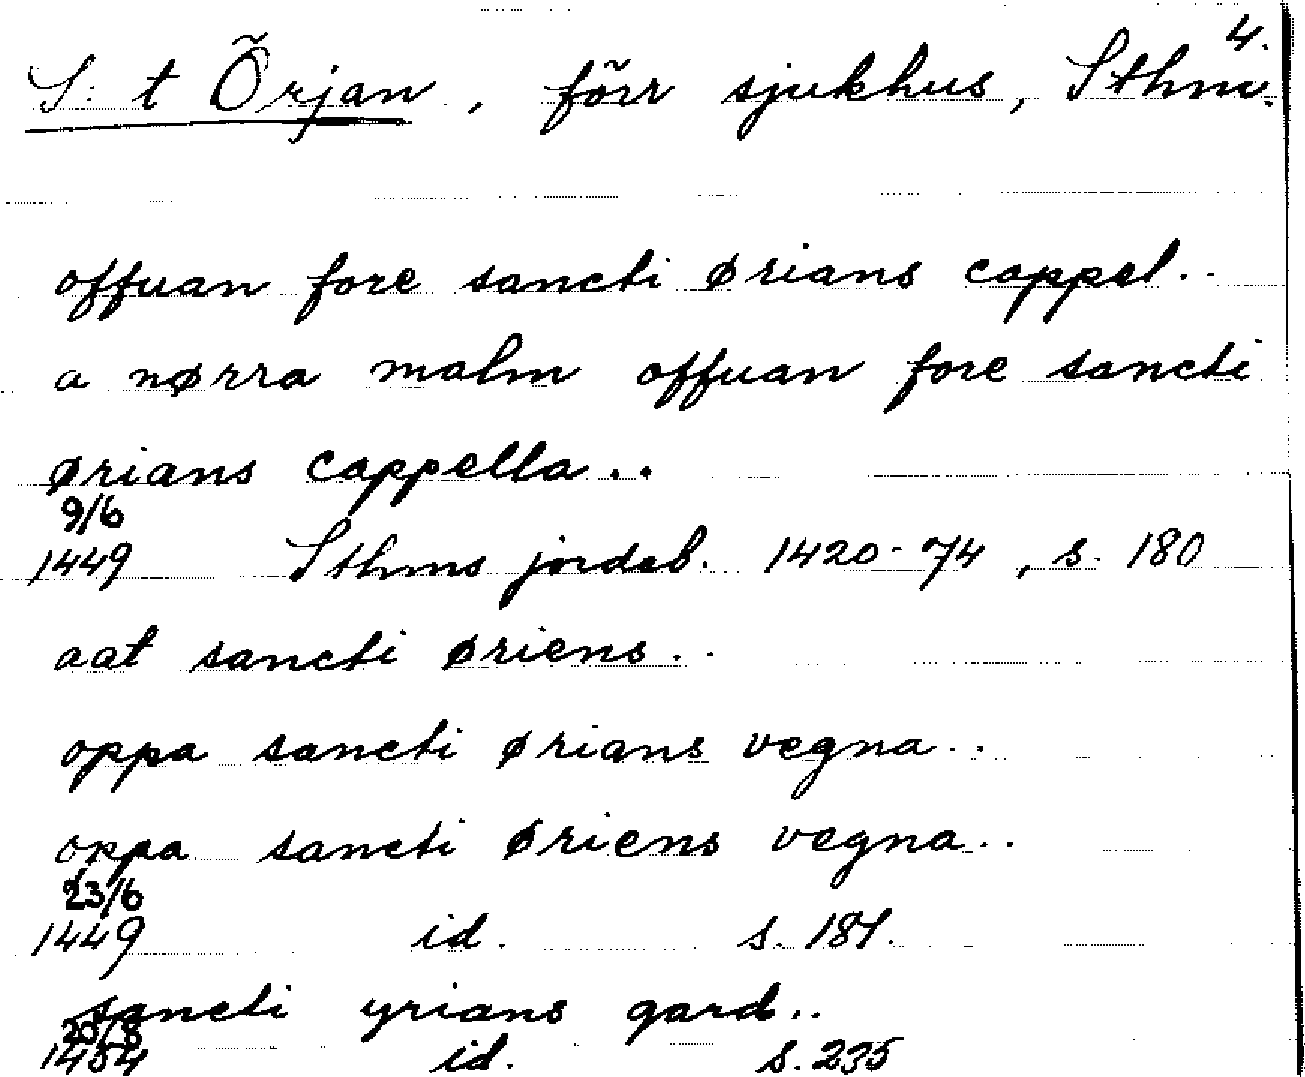 4.
S:t Örjan, förr sjukhus, Sthm.
offuan fore sancti ørians cappel..
a nørra malm offuan fore sancti
ørians cappella..
9/6
1449 Sthms jordeb. 1420-74, s. 180
aat sancti øriens..
oppa sancti ørians vegna..
oppa sancti øriens vegna..
23/6
1449 id. s. 181.
sancti yrians gard..
1454 id. s. 235